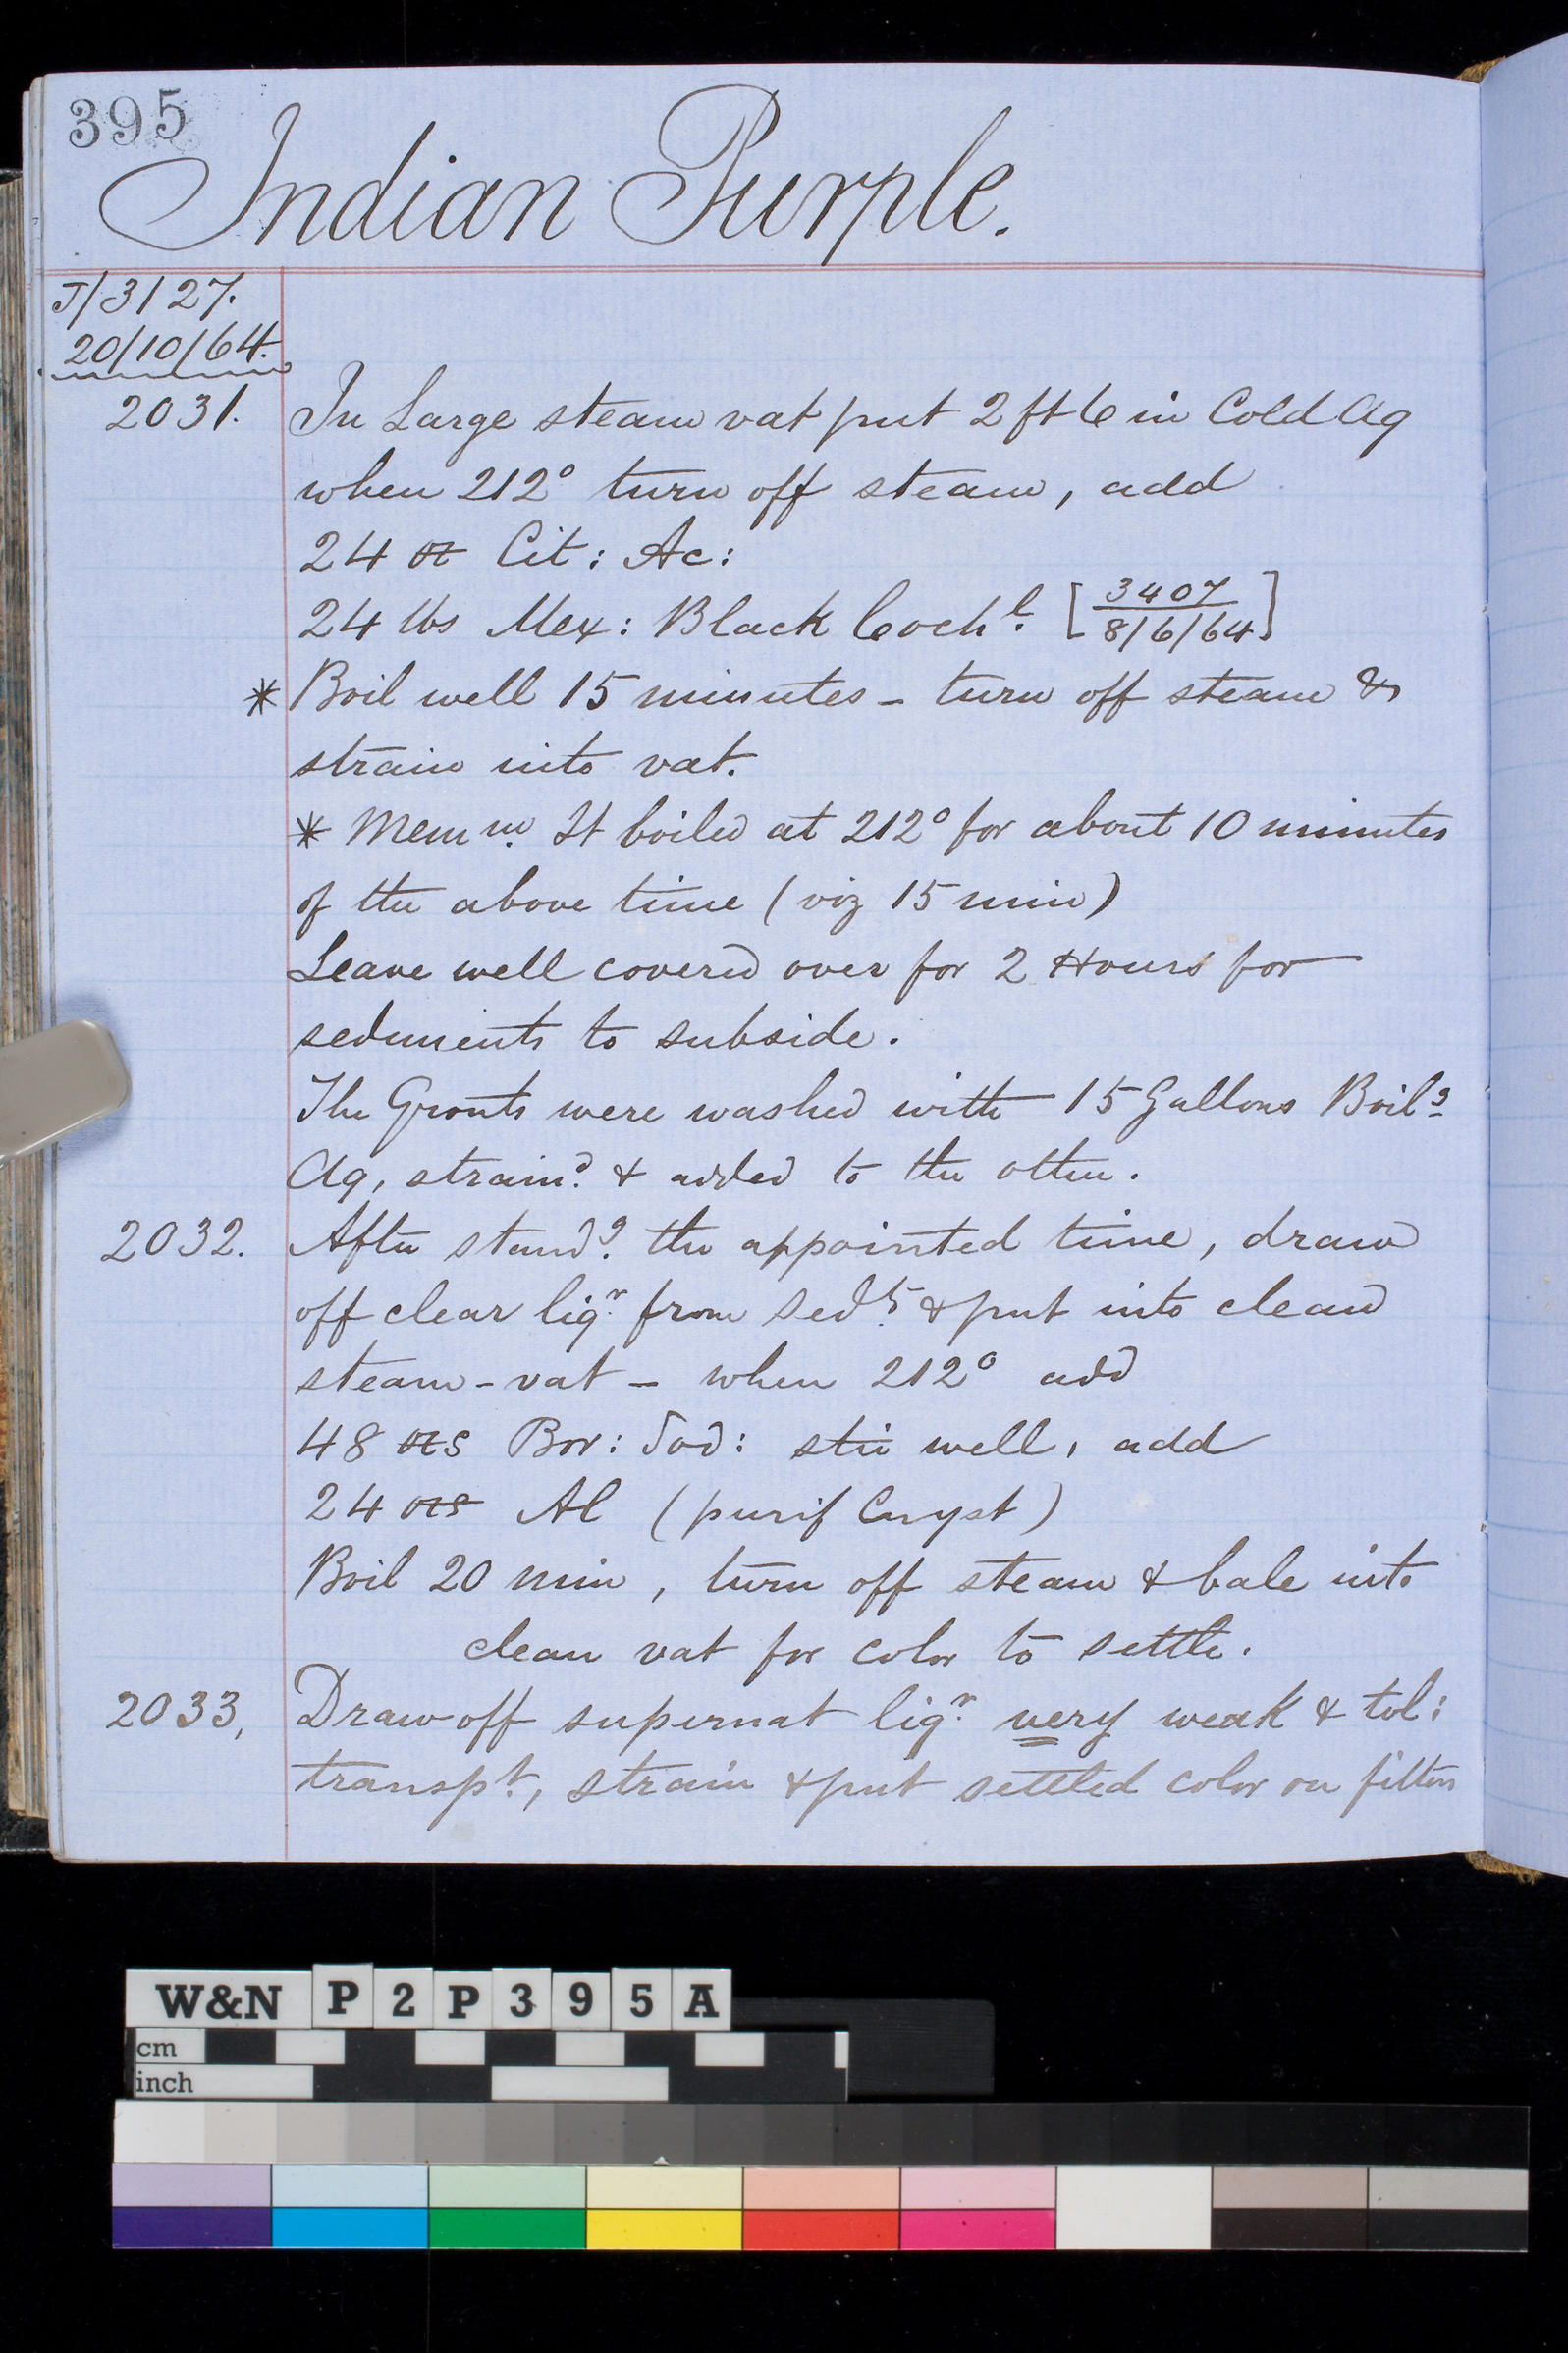 395
Indian Purple.
J/3127.
20/10/64.
2031. In Large steam vat put 2 ft 6 in Cold Aq
when 212° turn off steam, add
24 oz Cit: Ac:
24 lbs Mex: Black Cochl. [3407 / 8/6/64]
* Boil well 15 minutes - turn off steam &
strain into vat.
* Memm. It boiled at 212° for about 10 minutes
of the above time (viz 15 min)
Leave well covered over for 2 Hours for
sediments to subside.
The Grouts were washed with 15 Gallons Boilg
Aq, straind. & added to the other.
2032. After standg. the appointed time, draw
off clear liqr. from Sedts. & put into clean
steam-vat - when 212° add
48 ozs Bor: Sod: stir well, add
24 ozs Al (purif Cryst)
Boil 20 min, turn off steam & bale into
clean vat for color to settle.
2033, Draw off supernat liqr. very weak & tol:
transpt., strain & put settled color on filters
W&N P2P395A
cm
inch